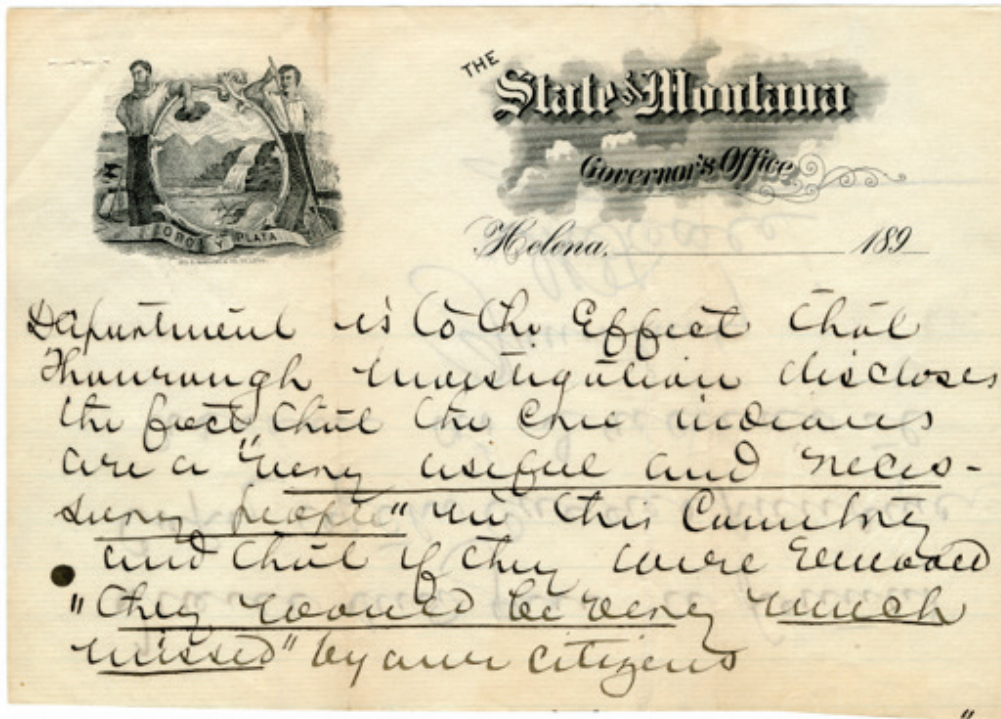 THE
State of Montana
Governor's Office
Helena, 189
ORO Y PLATA
Department is to the Effect that
Thourough investigation discloses
the fact that the Cree indians
are a "very useful and neces-
sary people" in this Country
and that if they were removed
"they would be very much
missed" by our citizens
"